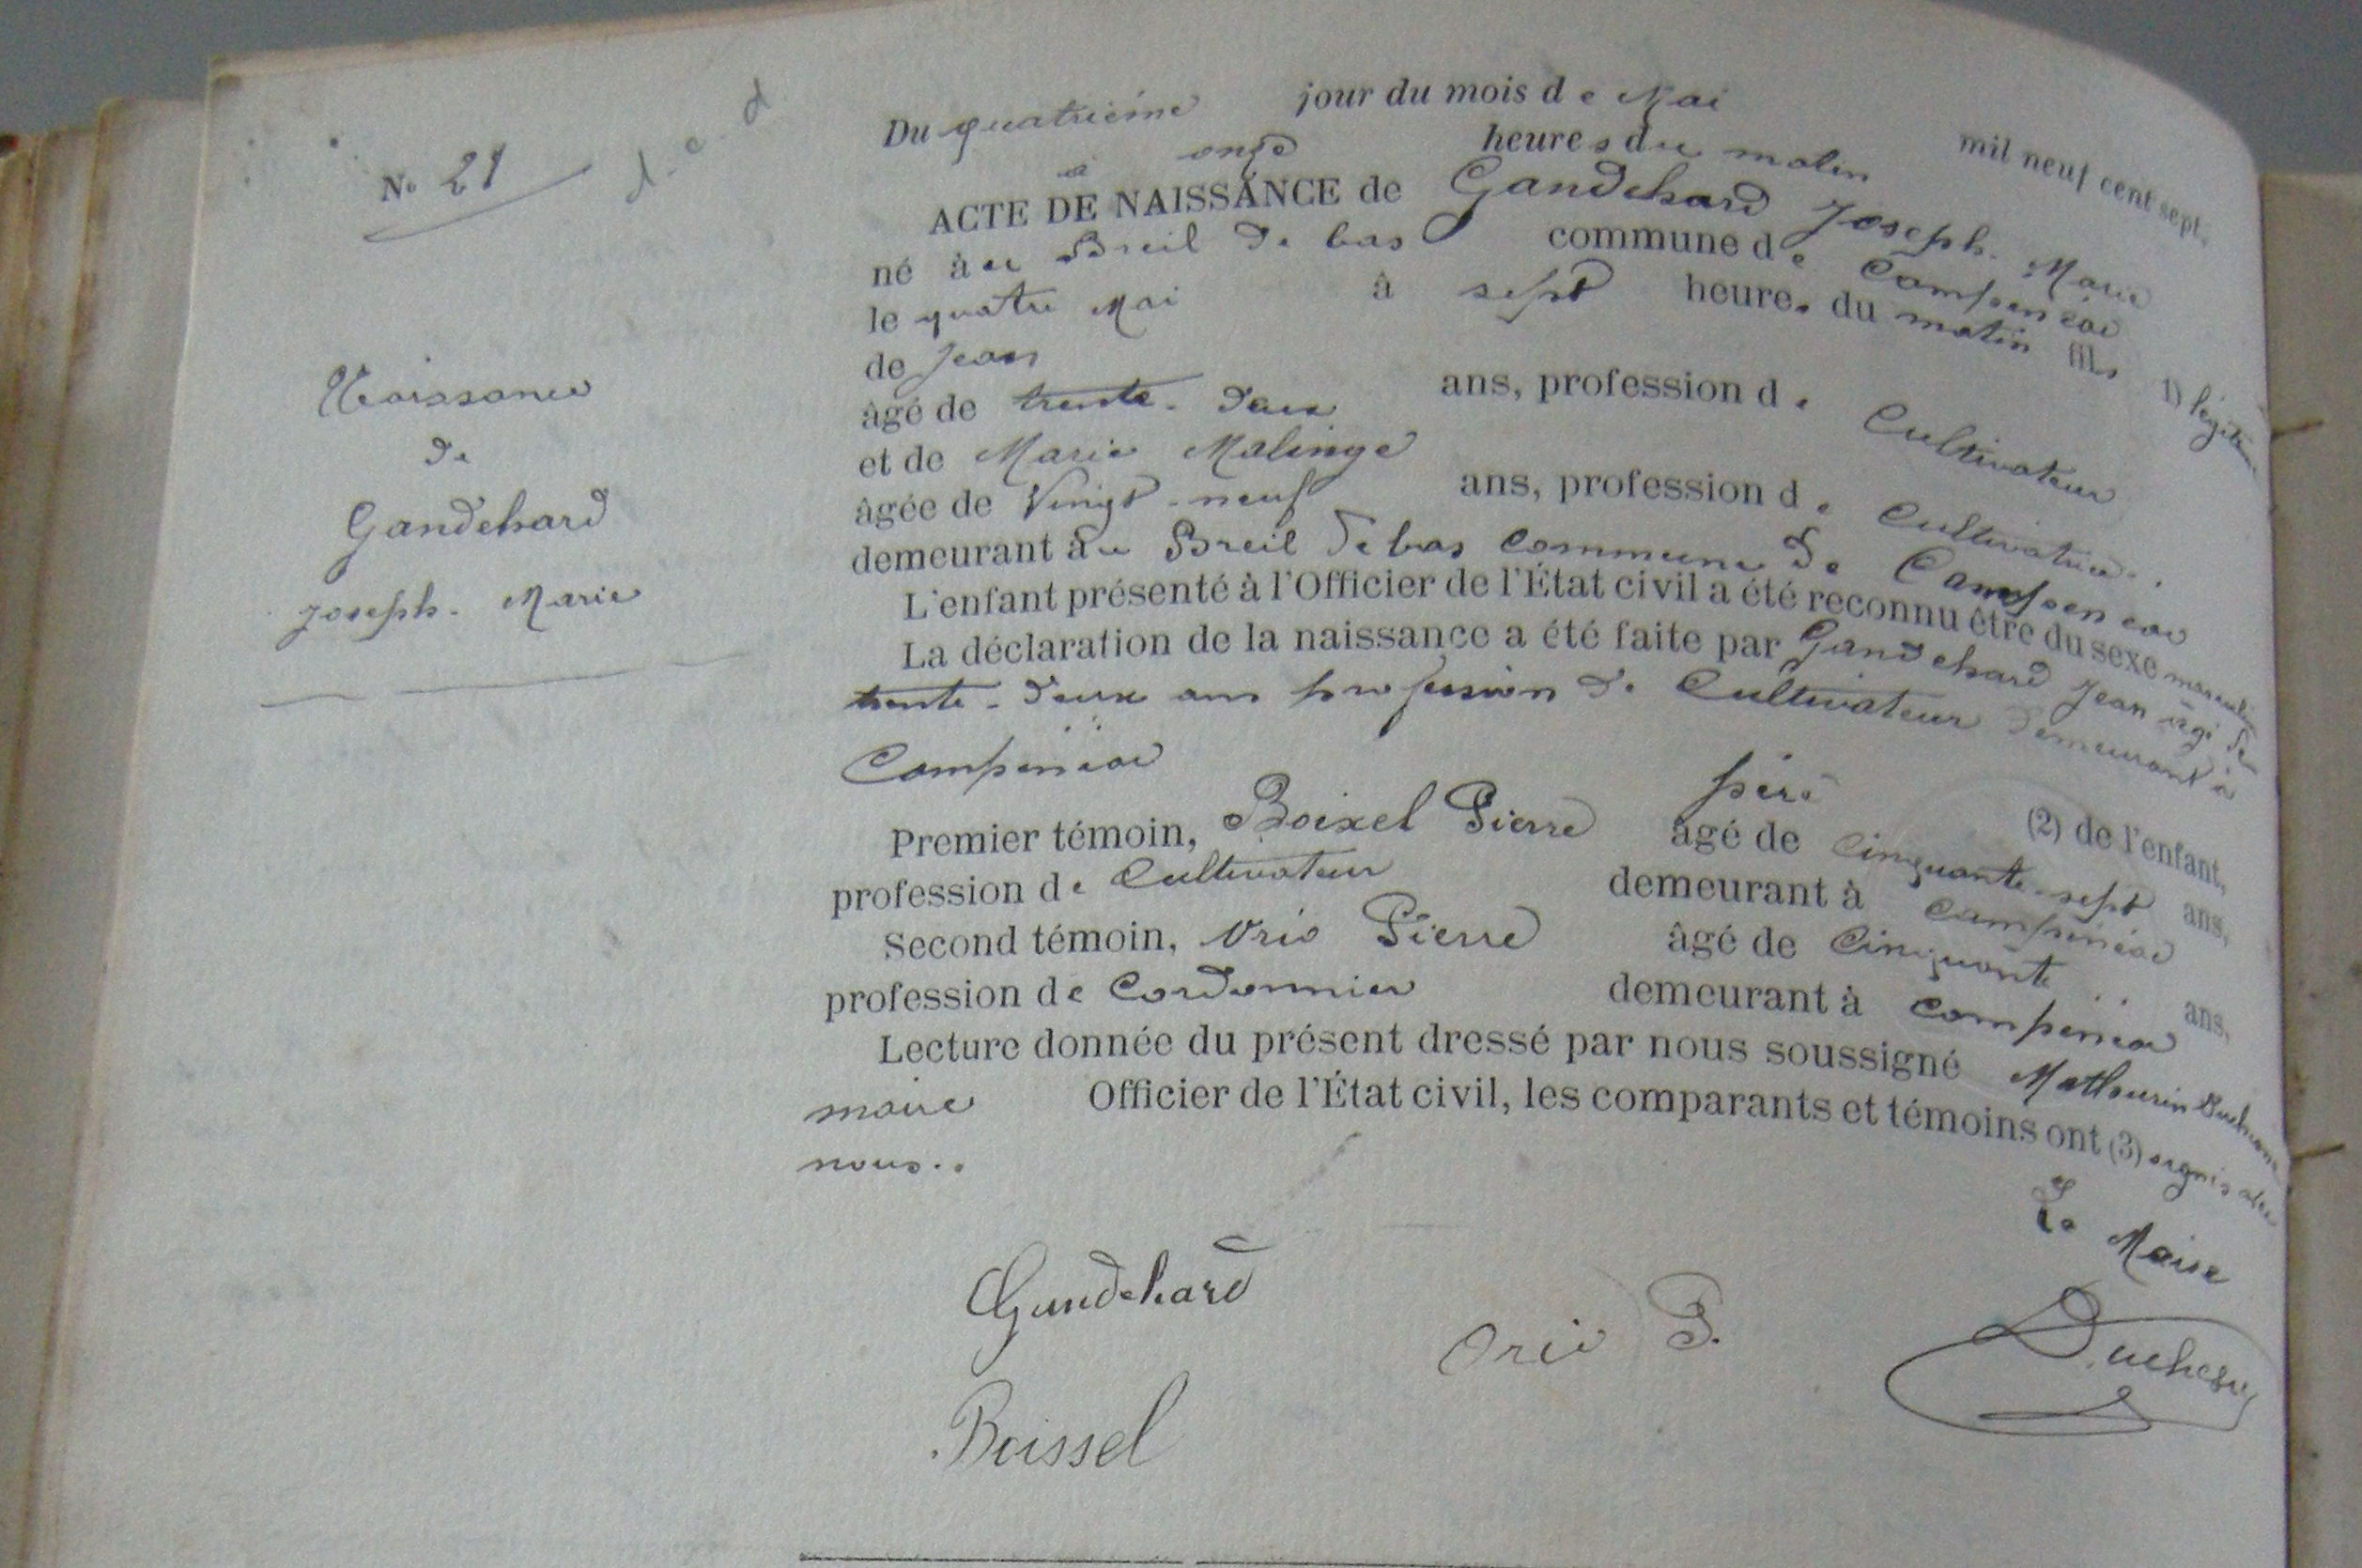 No 21
d. c. d
Naissance
de
Gandehard
Joseph. Marie
Du quatrième jour du mois de Mai mil neuf cent sept,
à onze heures du matin
ACTE DE NAISSANCE de Gandehard Joseph. Marie
né à au Breil de bas commune de Campénéac
le quatre Mai à sept heures du matin fils 1) légitime
de Jean
âgé de trente-deux ans, profession de Cultivateur
et de Marie Malinge
âgée de Vingt-neuf ans, profession de Cultivatrice.
demeurant au Breil de bas commune de Campénéac
L'enfant présenté à l'Officier de l'État civil a été reconnu être du sexe masculin
La déclaration de la naissance a été faite par Gandehard Jean âgé de
trente-deux ans profession de Cultivateur demeurant à
Campénéac père (2) de l'enfant,
Premier témoin, Boixel Pierre âgé de cinquante-sept ans,
profession de Cultivateur demeurant à Campénéac
Second témoin, Orio Pierre âgé de Cinquante ans,
profession de Cordonnier demeurant à Campénéac
Lecture donnée du présent dressé par nous soussigné Mathurin
maire Officier de l'État civil, les comparants et témoins ont (3) signés avec
nous..
Le Maire
Gandehard
Orio P.
Duchesne
Boissel